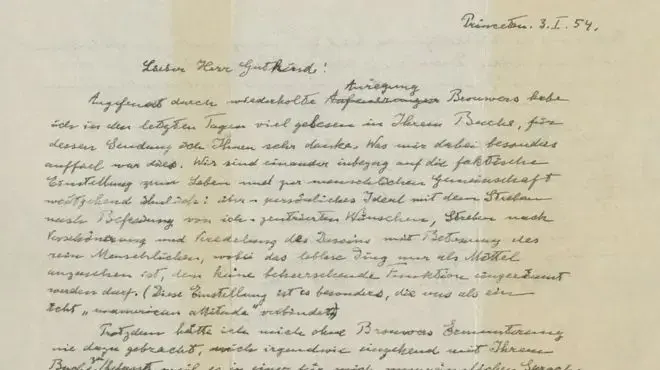 Princeton. 3. I. 54.
Lieber Herr Gutkind!
Angefeuert durch wiederholte Anregung Brouwers habe
ich in den letzten Tagen viel gelesen in Ihrem Buche, für
dessen Sendung ich Ihnen sehr danke. Was mir dabei besonders
auffiel war dies. Wir sind einander inbezug auf die faktische
Einstellung zum Leben und zur menschlichen Gemeinschaft
weitgehend ähnlich: über-persönliches Ideal mit dem Streben
nach Befreiung von ich-zentrierten Wünschen, Streben nach
Verschönerung und Veredelung des Daseins mit Betonung des
rein Menschlichen, wobei das leblose Ding nur als Mittel
anzusehen ist, dem keine beherrschende Funktion eingeräumt
werden darf. (Diese Einstellung ist es besonders, die uns als ein
echt „unamerican attitude" verbindet)
Trotzdem hätte ich mich ohne Brouwers Ermunterung
nie dazu gebracht, mich irgendwie eingehend mit Ihrem
weil es in einer für mich